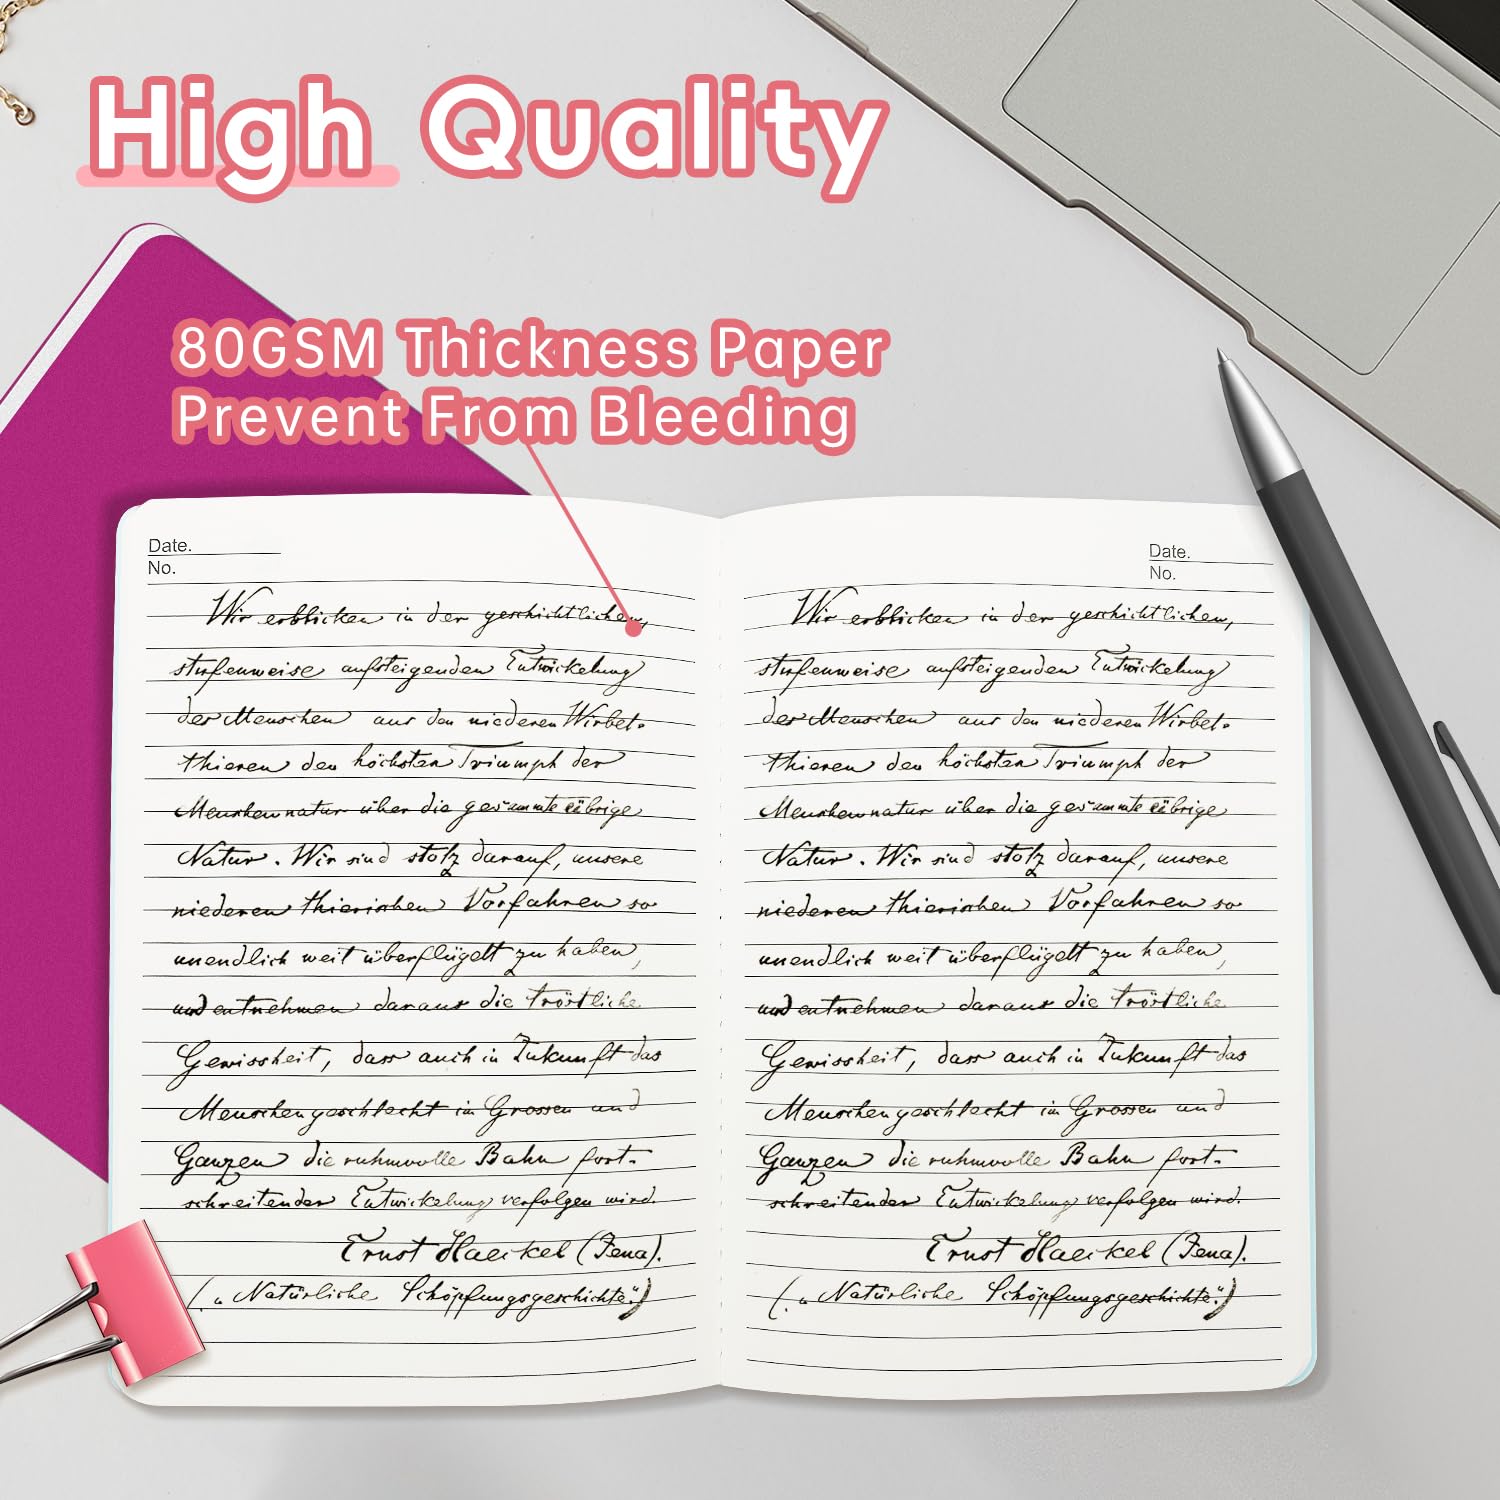 High Quality
80GSM Thickness Paper
Prevent From Bleeding
Date.
No.
Wir erblicken in der geschichtlichen,
stufenweise aufsteigenden Entwickelung
des Menschen aus den niederen Wirbel-
thieren den höchsten Triumph der
Menschennatur über die gesammte übrige
Natur. Wir sind stolz darauf, unsere
niederen thierischen Vorfahren so
unendlich weit überflügelt zu haben,
und entnehmen daraus die tröstliche
Gewissheit, dass auch in Zukunft das
Menschengeschlecht im Grossen und
Ganzen die ruhmvolle Bahn fort-
schreitender Entwickelung verfolgen wird.
Ernst Haeckel (Jena).
(„Natürliche Schöpfungsgeschichte“)
Date.
No.
Wir erblicken in der geschichtlichen,
stufenweise aufsteigenden Entwickelung
des Menschen aus den niederen Wirbel-
thieren den höchsten Triumph der
Menschennatur über die gesammte übrige
Natur. Wir sind stolz darauf, unsere
niederen thierischen Vorfahren so
unendlich weit überflügelt zu haben,
und entnehmen daraus die tröstliche
Gewissheit, dass auch in Zukunft das
Menschengeschlecht im Grossen und
Ganzen die ruhmvolle Bahn fort-
schreitender Entwickelung verfolgen wird.
Ernst Haeckel (Jena).
(„Natürliche Schöpfungsgeschichte“)